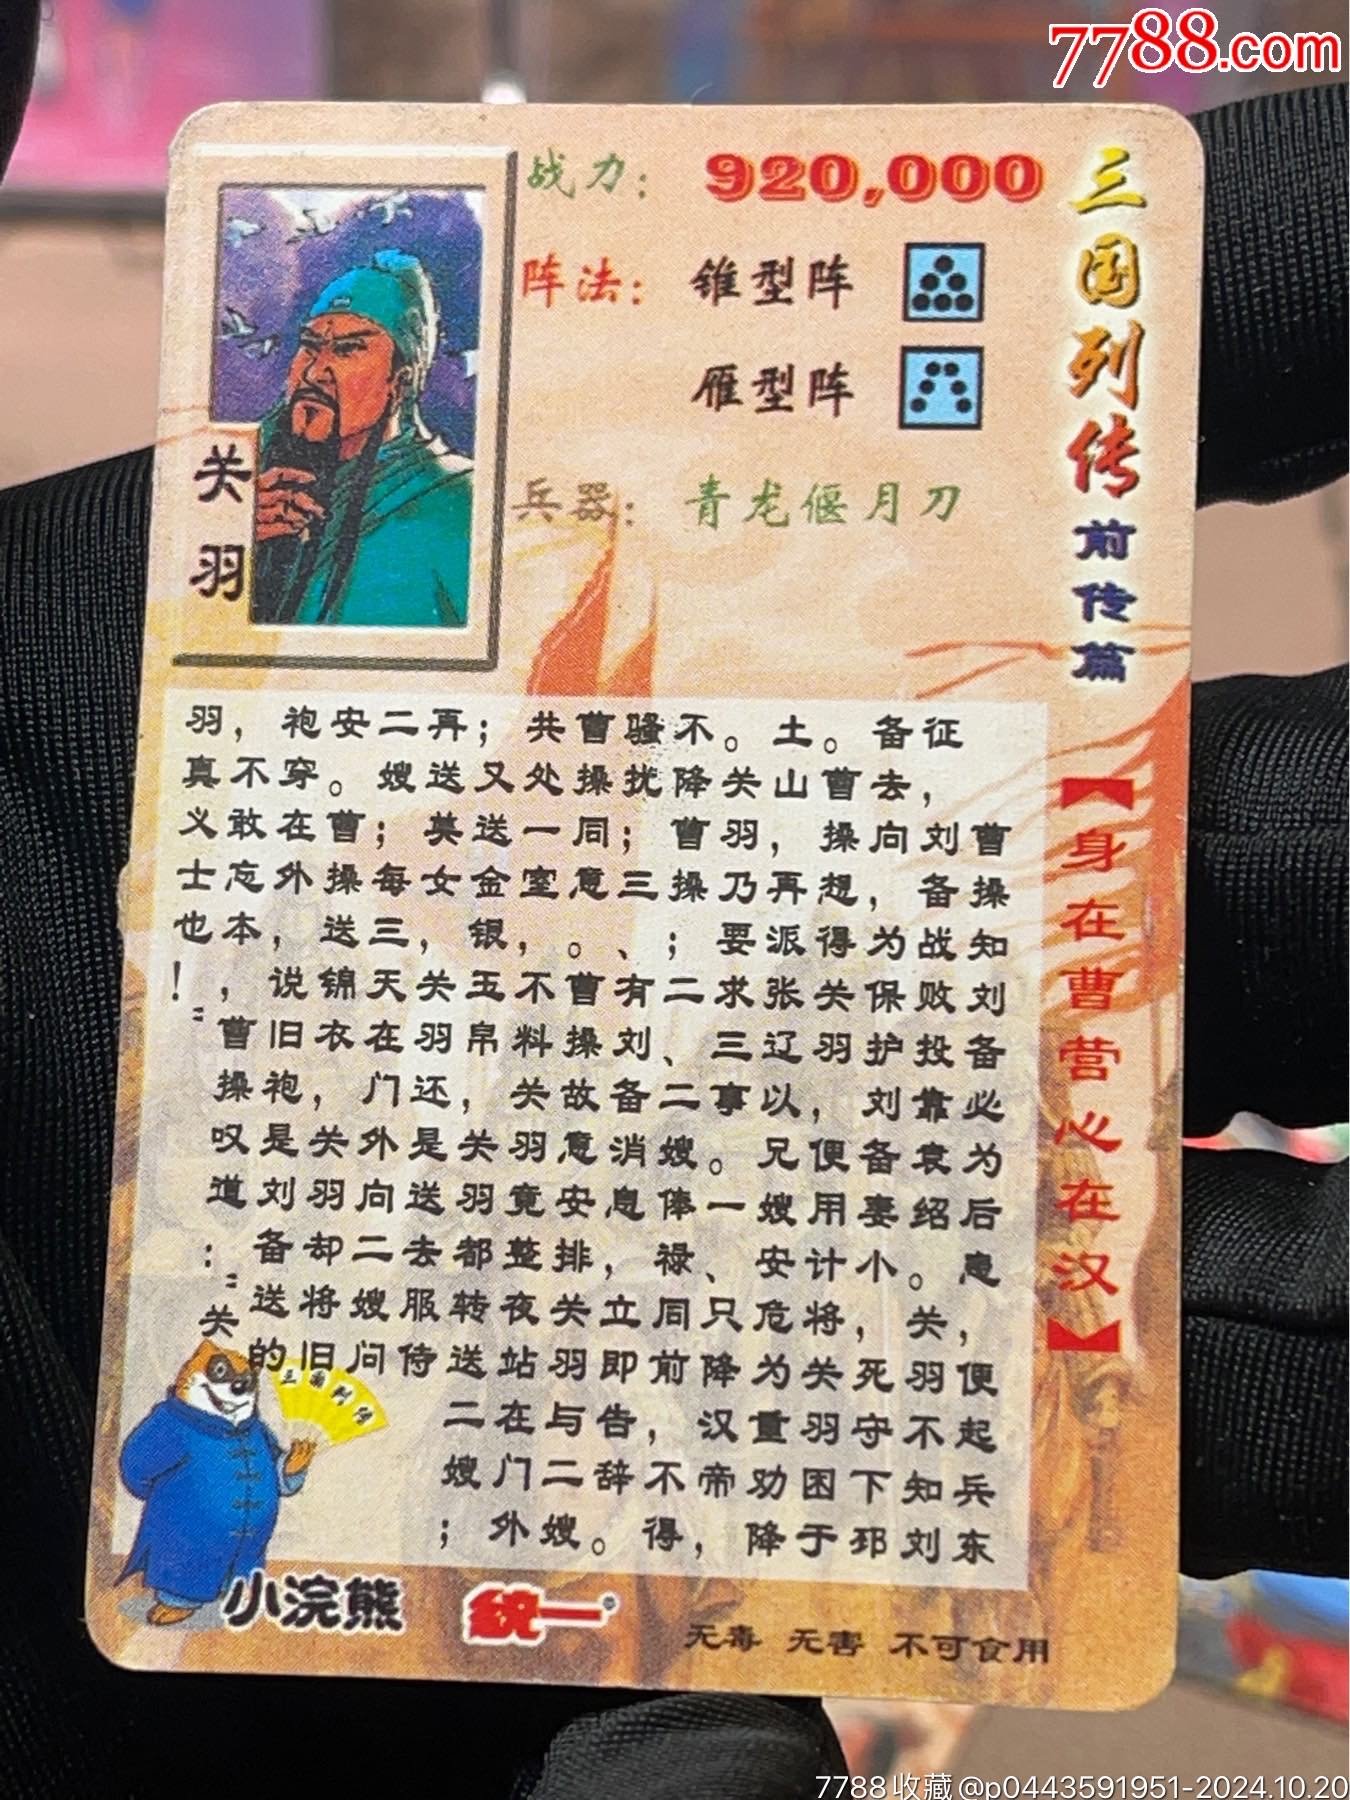 7788.com
三国列传 前传篇
【身在曹营心在汉】
战力：920,000
阵法：锥型阵
雁型阵
兵器：青龙偃月刀
关羽
曹操知刘备必为后患，便起兵东
征，刘备战败投靠袁绍。关羽不知刘
备去向，为保护刘备妻小，死守下邳
。曹操想得关羽，便用计将关羽困于
土山，再派张辽以兄嫂安危为重劝降
。关羽乃要求三事。一、只降汉帝，
不降曹操；二、二嫂俸禄同前，不得
骚扰；三、有刘备消息，即立告辞。
曹操同意。曹操故意安排关羽与二嫂
共处一室，不料关羽竟整夜站在门外
；又送金银、玉帛，关羽都转送二嫂；
再送美女，关羽还是送去服侍
二嫂；每三天在门外向二嫂问
安。曹操送锦衣，关羽却将旧
袍穿在外，说旧袍是刘备送的
，不敢忘本，曹操叹道："关
羽真义士也！"
三国列传
小浣熊
統一
无毒 无害 不可食用
7788收藏@p0443591951-2024.10.20